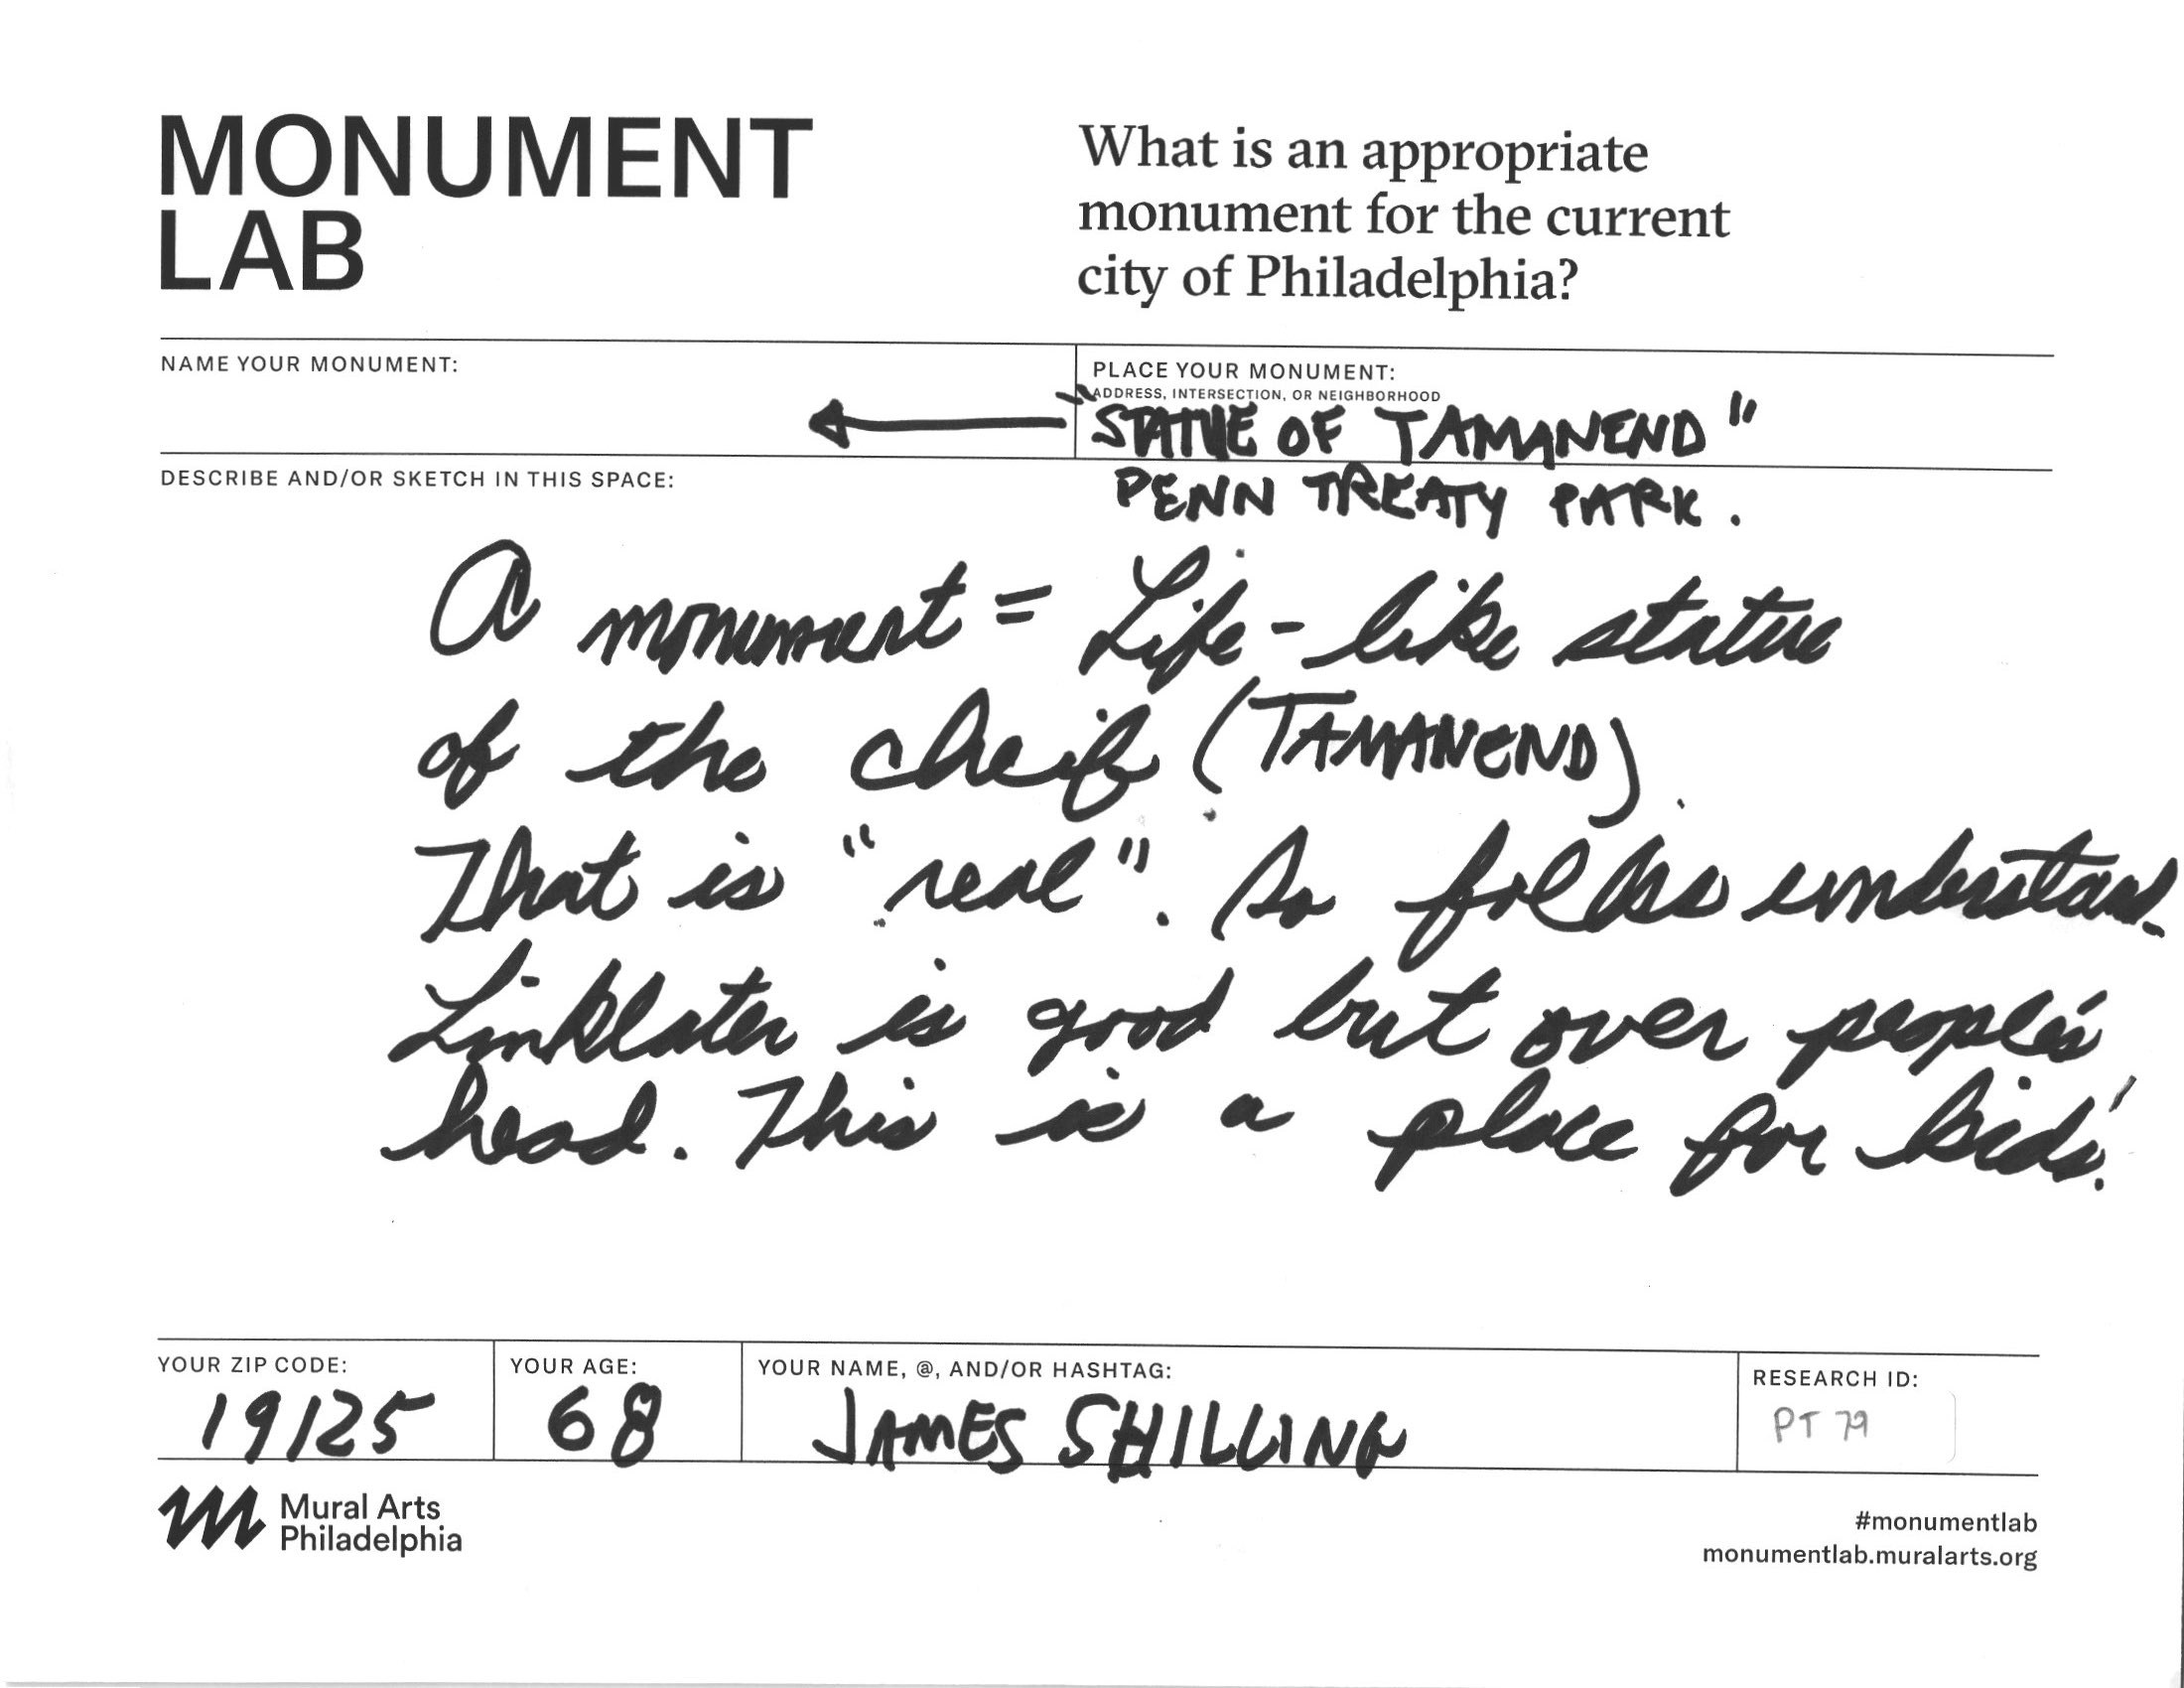 MONUMENT
LAB
What is an appropriate
monument for the current
city of Philadelphia?
NAME YOUR MONUMENT:
PLACE YOUR MONUMENT:
ADDRESS, INTERSECTION, OR NEIGHBORHOOD
"STATUE OF TAMANEND"
DESCRIBE AND/OR SKETCH IN THIS SPACE:
PENN TREATY PARK.
A monument = Life-like statue
of the cheif (TAMANEND).
That is "real". So folks understand.
Linklater is good but over people's
head. This is a place for kids!
YOUR ZIP CODE:
19125
YOUR AGE:
68
YOUR NAME, @, AND/OR HASHTAG:
JAMES SHILLING
RESEARCH ID:
PT 79
Mural Arts
Philadelphia
#monumentlab
monumentlab.muralarts.org